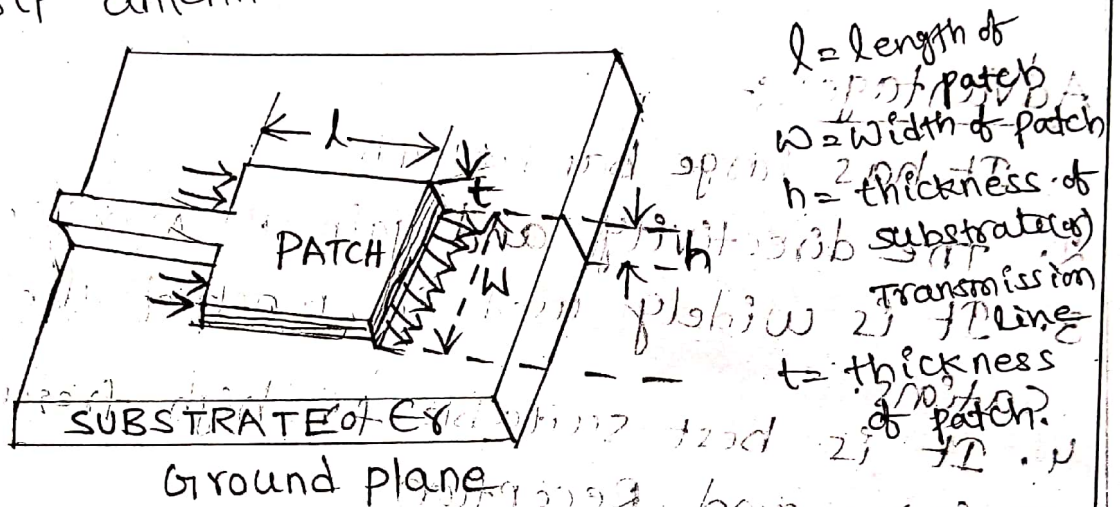 l
t
PATCH
W
h
SUBSTRATE of Er
Ground plane
l = length of
patch
W = Width of patch
h = thickness of
substrate (or)
Transmission
line
t = thickness
of patch.